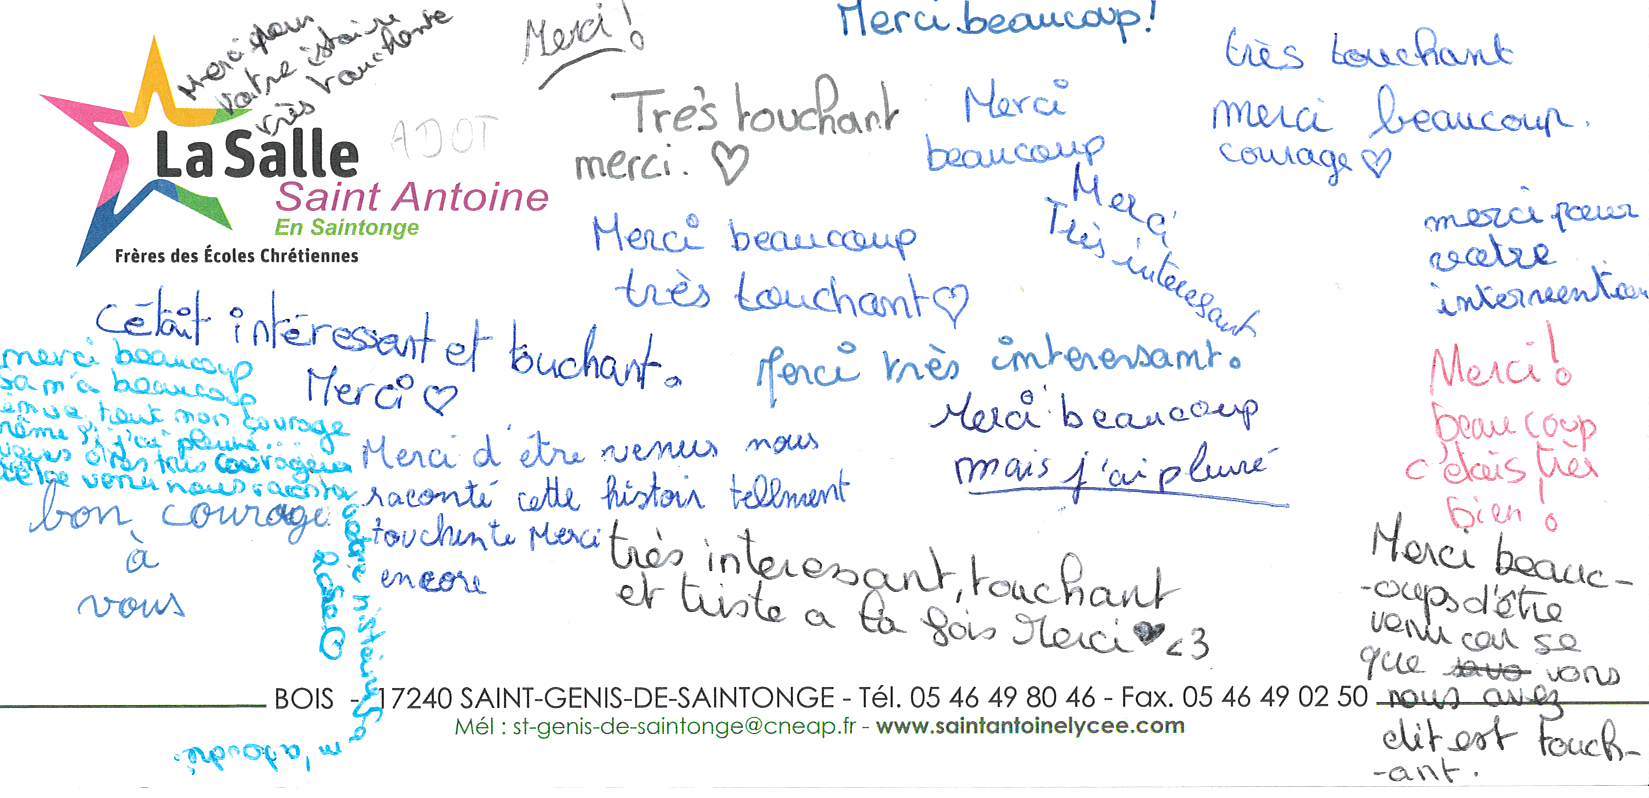 Merci pour
votre istoire
très touchante
Merci !
Merci beaucoup !
LaSalle
Saint Antoine
En Saintonge
Frères des Écoles Chrétiennes
ADOT
Très touchant
merci. ♡
Merci
beaucoup
très touchant
merci beaucoup.
courage ♡
Merci
Très interesant
merci pour
votre
intervention
Merci beaucoup
très touchant ♡
C'était intéressant et touchant.
Merci ♡
Merci très interessant.
Merci beaucoup
mais j'ai pleuré
Merci !
beaucoup
c'étais tres
bien !
merci beaucoup
sa m'a beaucoup
émue tout mon courage
même si j'ai pleuré...
vous êtes très courageux
venu nous raconter
votre histoire sa
m'a
bon courage
à
vous
Merci d'être venus nous
raconté cette histoir tellment
touchente Merci
encore
très interessant, touchant
et triste a la fois Merci ♥ <3
Merci beauc-
-oups d'être
venu car se
que vous
nous avez
dit est touch-
-ant.
BOIS - 17240 SAINT-GENIS-DE-SAINTONGE - Tél. 05 46 49 80 46 - Fax. 05 46 49 02 50
Mél : st-genis-de-saintonge@cneap.fr - www.saintantoinelycee.com